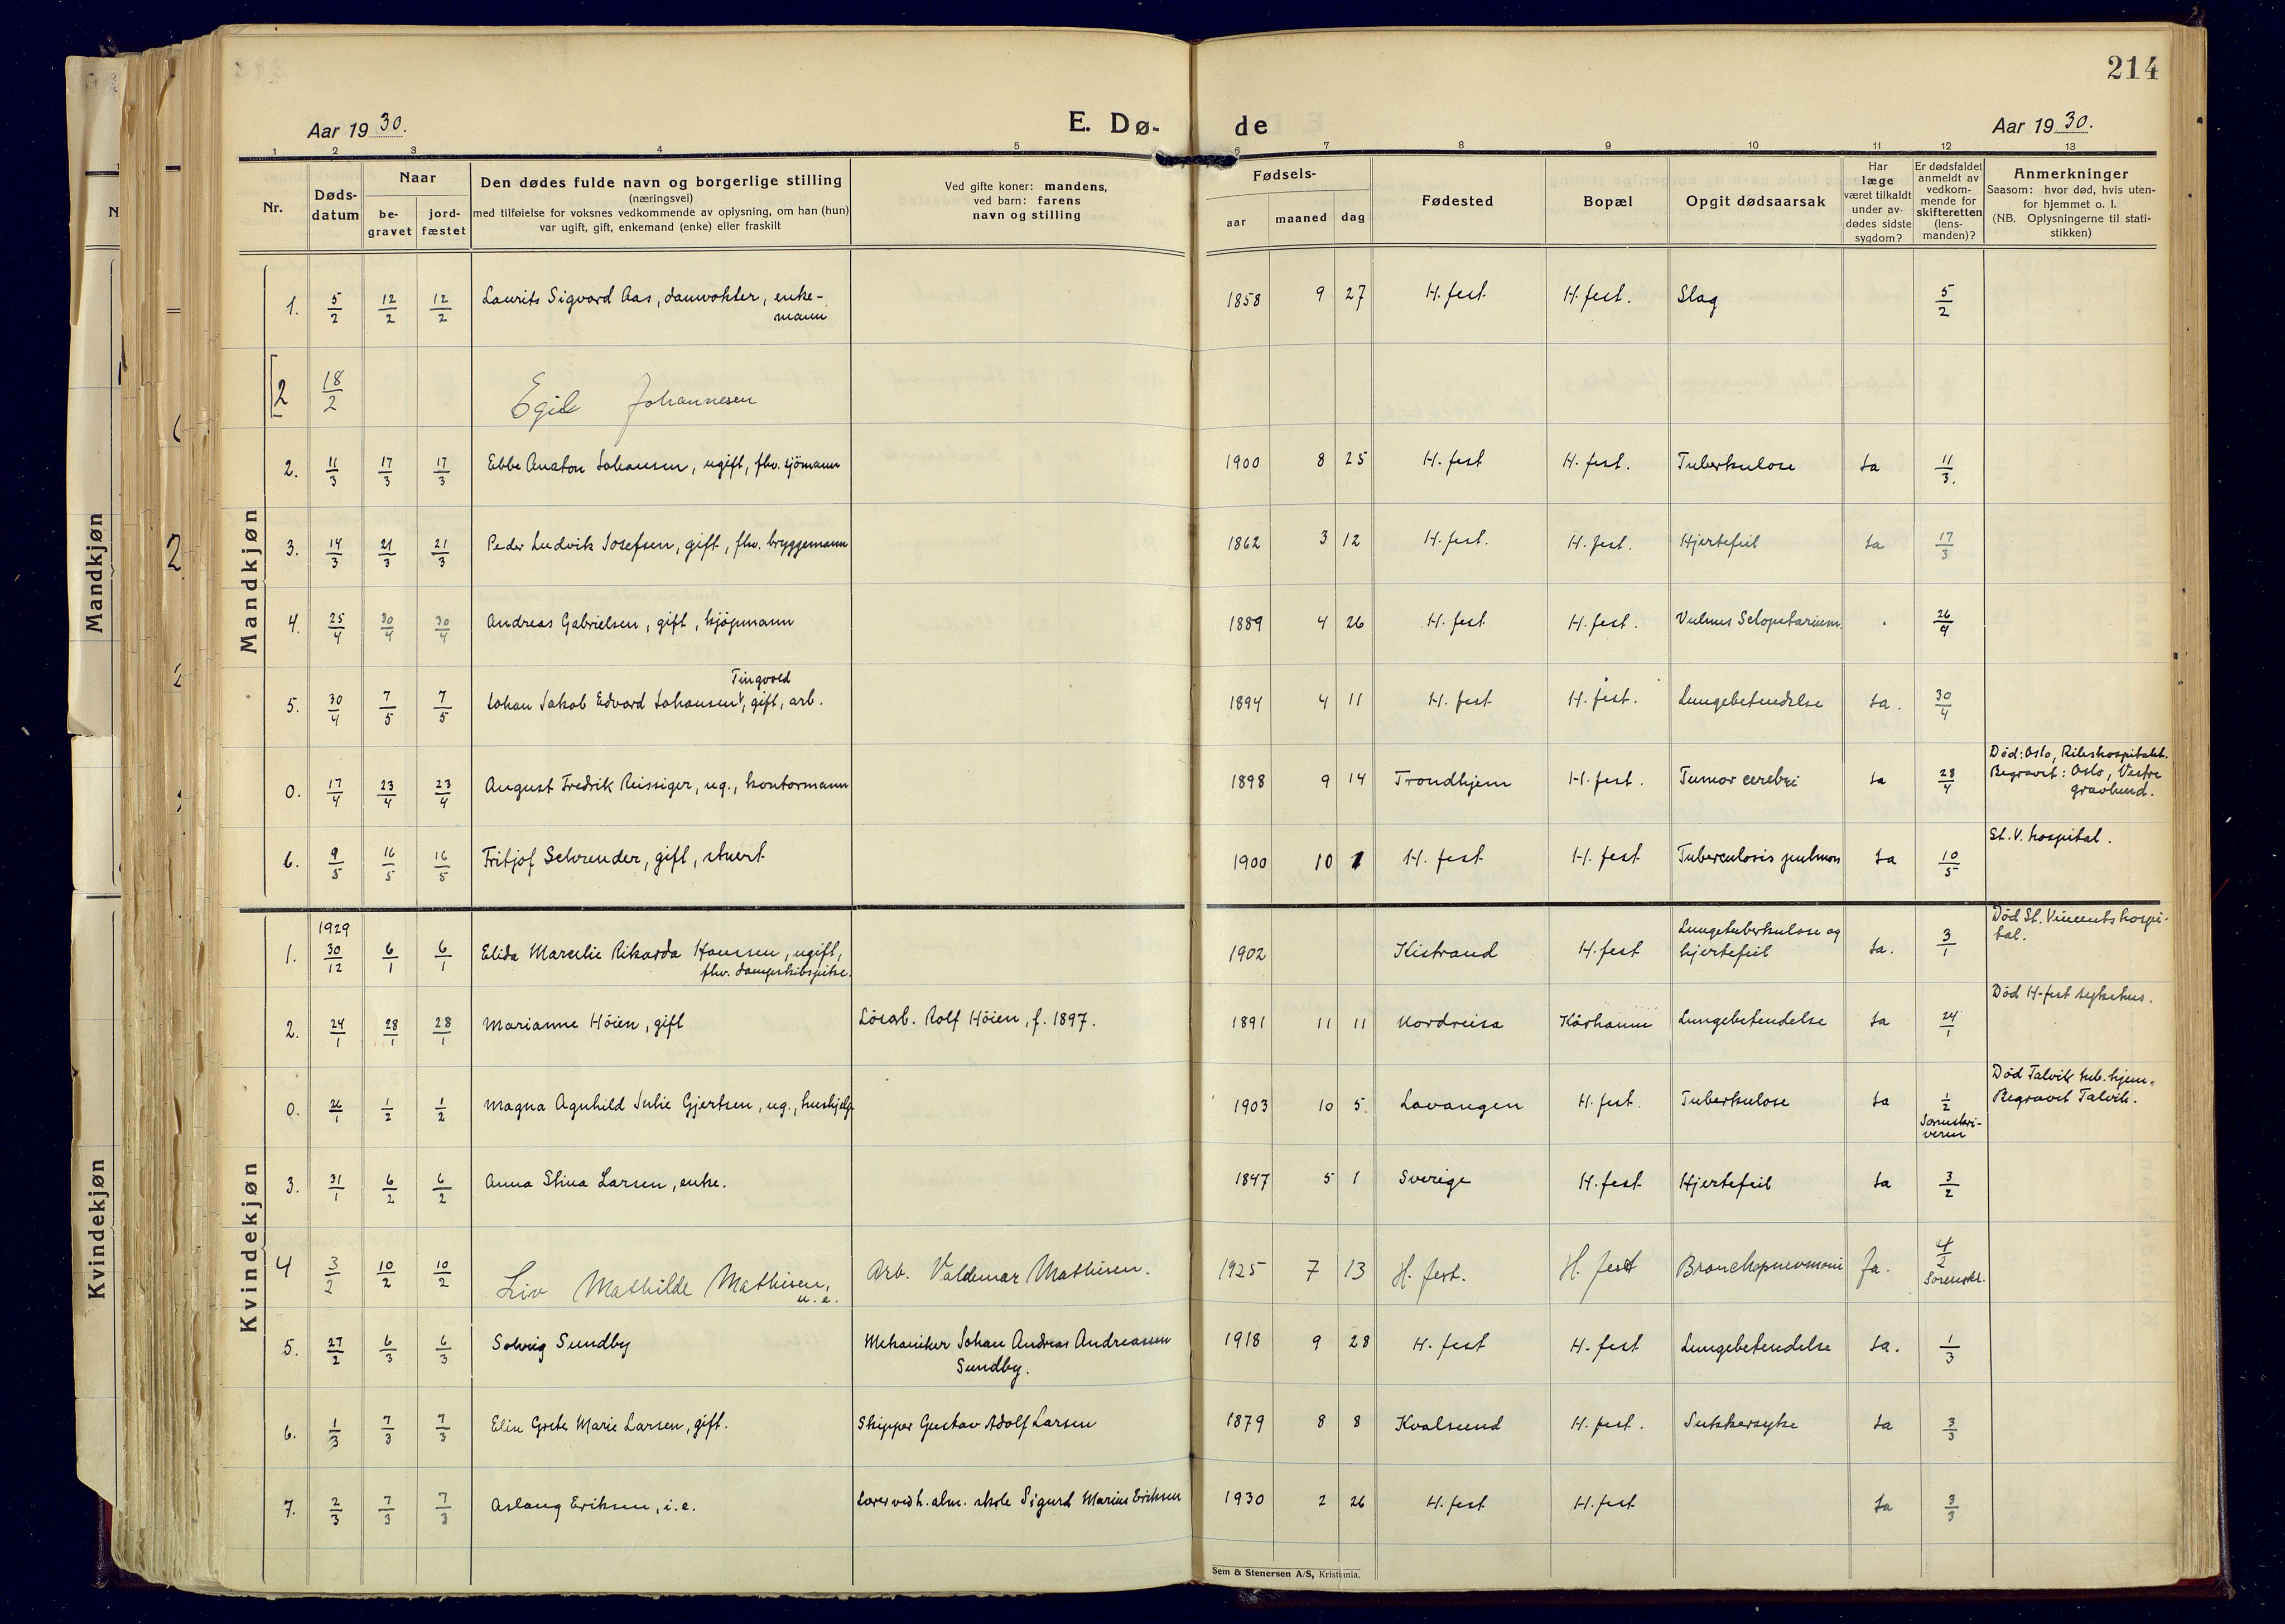 214
Aar 1930.
E. Dø-
de
Aar 1930.
1 2 3 4 5 6 7 8 9 10 11 12 13
Nr.
Døds-
datum
Naar
be-
gravet
jord-
fæstet
Den dødes fulde navn og borgerlige stilling
(næringsvei)
med tilføielse for voksnes vedkommende av oplysning, om han (hun)
var ugift, gift, enkemand (enke) eller fraskilt
Ved gifte koner: mandens,
ved barn: farens
navn og stilling
Fødsels-
aar maaned dag
Fødested
Bopæl
Opgit dødsaarsak
Har
læge
været tilkaldt
under av-
dødes sidste
sygdom?
Er dødsfaldet
anmeldt av
vedkom-
mende for
skifteretten
(lens-
manden)?
Anmerkninger
Saasom: hvor død, hvis uten-
for hjemmet o. l.
(NB. Oplysningerne til stati-
stikken)
Mandkjøn
1. 5/2 12/2 12/2 Laurits Sigvard Aas, damvokter, enke-
mann
1858 9 27 H.fest H.fest. Slag 5/2
[2 18/2 Egil Johannesen
2. 11/3 17/3 17/3 Ebbe Anaton Johansen, ugift, fhv. sjömann 1900 8 25 H.fest H.fest. Tuberkulose Ja 11/3.
3. 14/3 21/3 21/3 Peder Ludvik Josefsen, gift, fhv. bryggemann 1862 3 12 H.fest. H.fest. Hjertefeil Ja 17/3
4. 25/4 30/4 30/4 Andreas Gabrielsen, gift, kjöpmann 1889 4 26 H.fest H.fest. Vulnus Sclopetarium. 26/4
Tingvold
5. 30/4 7/5 7/5 Johan Jakob Edvard Johansen, gift, arb. 1894 4 11 H.fest H.fest. Lungebetendelse Ja. 30/4
0. 17/4 23/4 23/4 August Fredrik Reissiger, ug., kontormann 1898 9 14 Trondhjem H.fest. Tumor cerebri Ja 28/4
Död: Oslo, Rikshospitalet.
Begravet: Oslo, Vestre
gravlund.
6. 9/5 16/5 16/5 Fritjof Schrender, gift, stuert 1900 10 1 H.fest H.fest Tuberculosis pulmon Ja 10/5 St. V. hospital.
Kvindekjøn
1929
1. 30/12 6/1 6/1 Elida Marcelie Rikarda Hansen, ugift,
fhv. dampskibspike.
1902 Kistrand H.fest Lungetuberkulose og
hjertefeil
Ja. 3/1 Död St. Vincents hospi-
tal.
2. 24/1 28/1 28/1 Marianne Höien, gift Lösarb. Rolf Höien, f. 1897. 1891 11 11 Nordreisa Kårhamn Lungebetendelse Ja 24/1 Död H-fest sykehus.
0. 26/1 1/2 1/2 Magna Agnhild Julie Gjertsen, ug., hushjelp 1903 10 5. Lavangen H.fest. Tuberkulose Ja 1/2
Sorenskri-
veren
Död Talvik tub. hjem.
Begravet Talvik.
3. 31/1 6/2 6/2 Anna Stina Larsen, enke. 1847 5 1 Sverige H.fest Hjertefeil Ja 3/2
4 3/2 10/2 10/2 Liv Mathilde Mathisen,
u.e.
Arb. Valdemar Mathisen. 1925 7 13 H. fest. H. fest Bronchopneumoni Ja. 4/2
Sorenskr.
5. 27/2 6/3 6/3 Solveig Sundby Mekaniker Johan Andreas Andreassen
Sundby.
1918 9 28 H.fest H.fest Lungebetendelse Ja. 1/3
6. 1/3 7/3 7/3 Elin Grete Marie Larsen, gift. Skipper Gustav Adolf Larsen 1879 8 8 Kvalsund H.fest. Sukkersyke Ja 3/3
7. 2/3 7/3 7/3 Aslaug Eriksen, i.e. Lærer ved h. alm. skole Sigurd Marius Eriksen 1930 2 26 H.fest H.fest Ja 3/3
Sem & Stenersen A/S, Kristiania.
Mandkjøn
Kvindekjøn